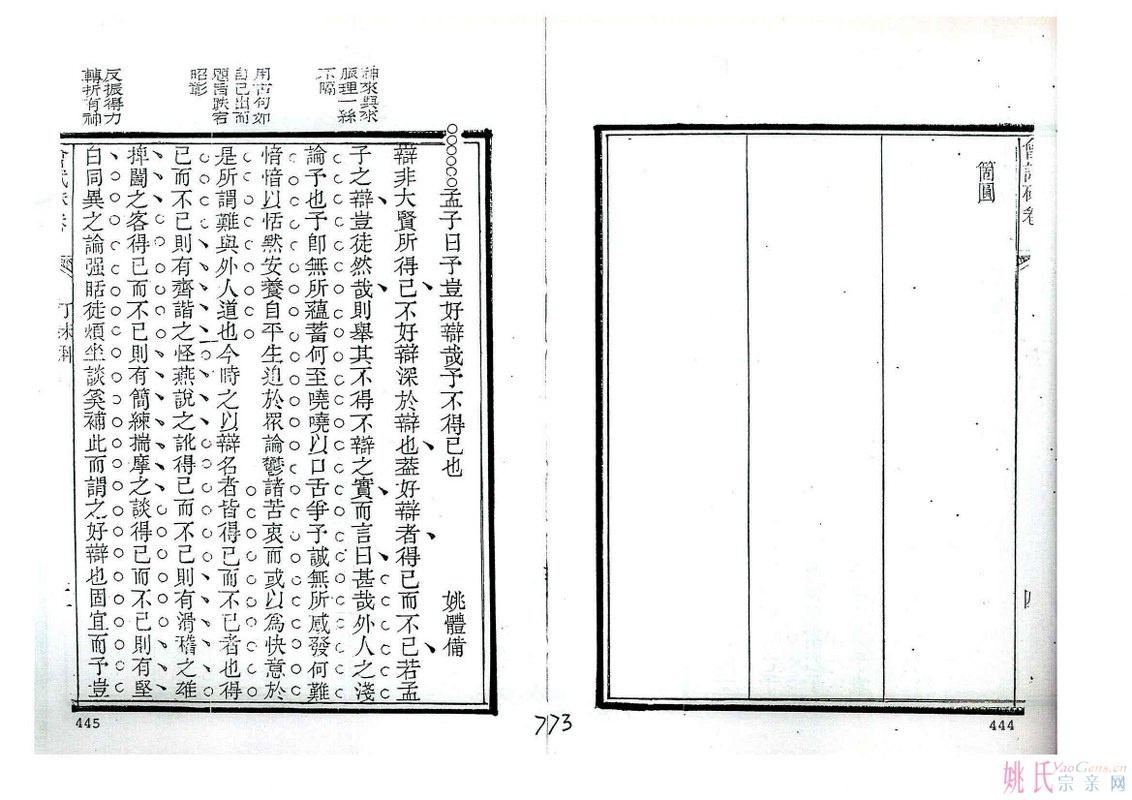 會試硃卷
圈圓
四
444
神來與來
脈理一絲
不隔
用古句如
自己出而
題旨跌宕
昭彰
反振得力
轉折有神
孟子曰予豈好辯哉予不得已也
姚體備
辯非大賢所得已不好辯深於辯也蓋好辯者得已而不已若孟
子之辯豈徒然哉則舉其不得不辯之實而言曰甚哉外人之淺
論予也予卽無所蘊蓄何至嘵嘵以口舌爭予誠無所感發何難
愔愔以恬默安養自平生迫於眾論鬱諸苦衷而或以為快意於
是所謂難與外人道也今時之以辯名者皆得已而不已者也得
已而不已則有齊諧之怪燕說之訛得已而不已則有滑稽之雄
捭闔之客得已而不已則有簡練揣摩之談得已而不已則有堅
白同異之論强聒徒煩坐談奚補此而謂之好辯也固宜而予豈
會試硃卷
丁未科
445
773
姚氏宗亲网
YaoGens.cn